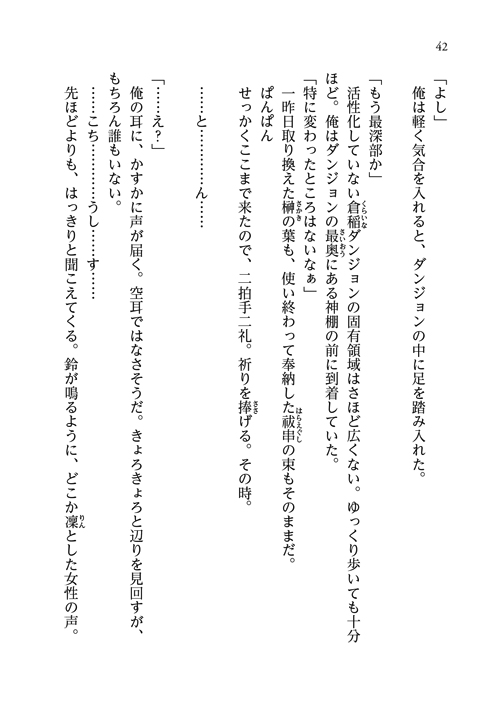 42
「よし」
俺は軽く気合を入れると、ダンジョンの中に足を踏み入れた。
「もう最深部か」
活性化していない倉稲ダンジョンの固有領域はさほど広くない。ゆっくり歩いても十分
ほど。俺はダンジョンの最奥にある神棚の前に到着していた。
「特に変わったところはないなぁ」
一昨日取り換えた榊の葉も、使い終わって奉納した祓串の束もそのままだ。
ぱんぱん
せっかくここまで来たので、二拍手二礼。祈りを捧げる。その時。
……と…………ん……
「……え？」
俺の耳に、かすかに声が届く。空耳ではなさそうだ。きょろきょろと辺りを見回すが、
もちろん誰もいない。
……こち…………うし……す……
先ほどよりも、はっきりと聞こえてくる。鈴が鳴るように、どこか凜とした女性の声。